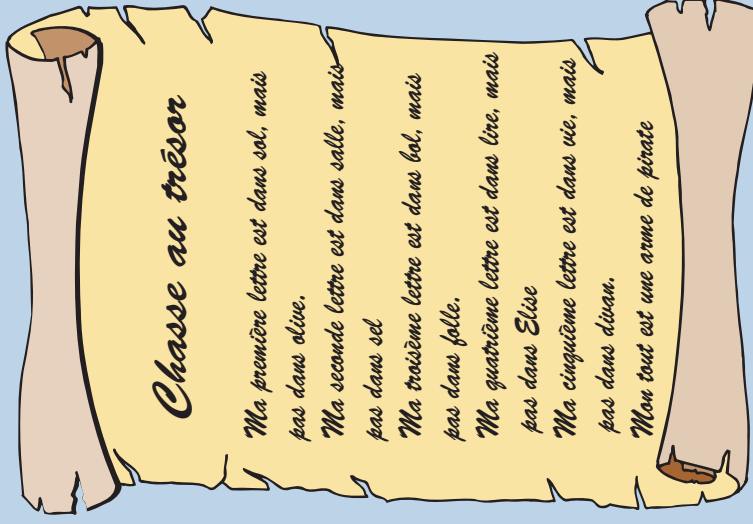 Chasse au trésor
Ma première lettre est dans sol, mais
pas dans olive.
Ma seconde lettre est dans salle, mais
pas dans sel
Ma troisème lettre est dans bol, mais
pas dans folle.
Ma quatrième lettre est dans lire, mais
pas dans Elise
Ma cinquième lettre est dans vie, mais
pas dans divan.
Mon tout est une arme de pirate